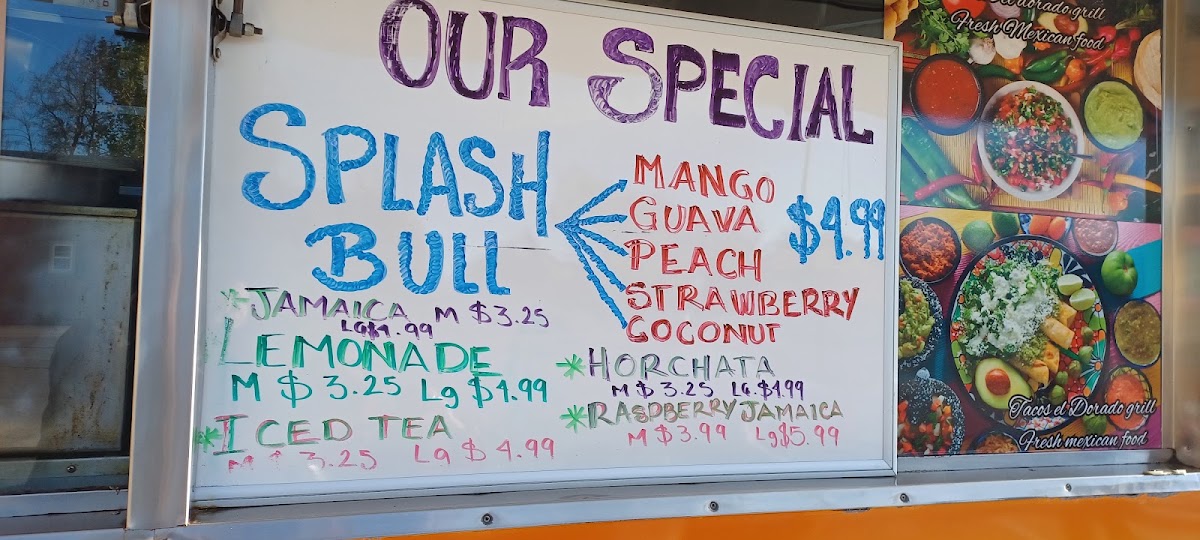 OUR SPECIAL
SPLASH
BULL
MANGO
GUAVA
PEACH
STRAWBERRY
COCONUT
$4.99
*JAMAICA M $3.25
LG$4.99
LEMONADE
M $3.25 Lg $4.99
*ICED TEA
M $3.25 Lg $4.99
*HORCHATA
M $3.25 LG.$4.99
*RASPBERRY JAMAICA
M $3.99 Lg$5.99
el dorado grill
Fresh Mexican food
Tacos el Dorado grill
Fresh mexican food